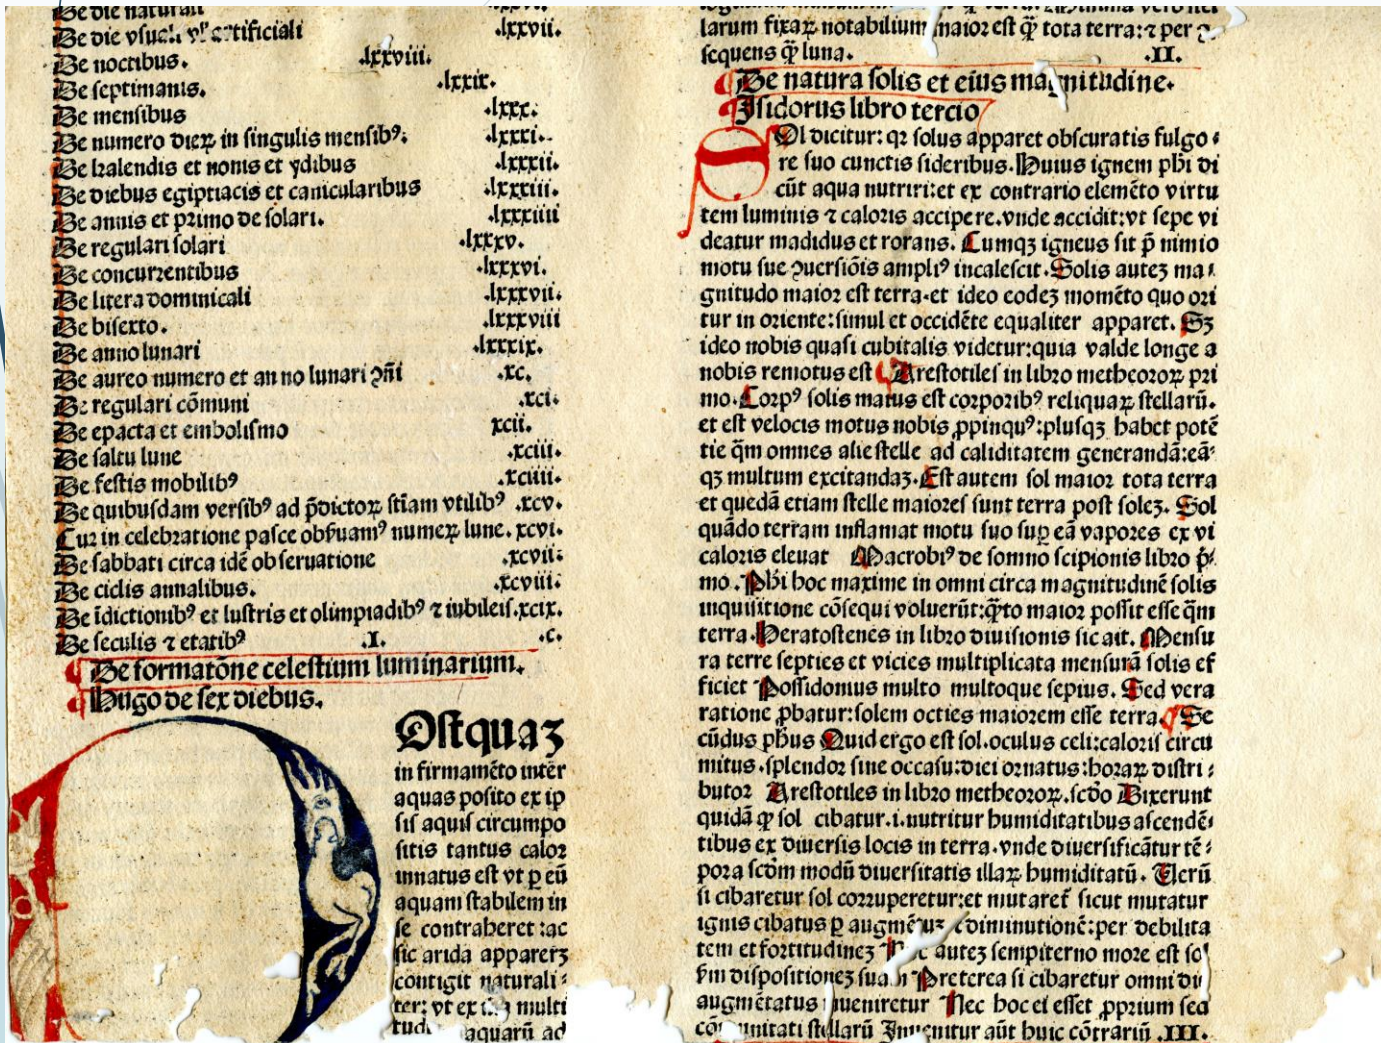 De die naturali .lxxvi.
De die vsuali vel artificiali .lxxvii.
De noctibus. .lxxviii.
De septimanis. .lxxix.
De mensibus .lxxx.
De numero dieꝝ in singulis mensibꝰ. .lxxxi.
De kalendis et nonis et ydibus .lxxxii.
De diebus egiptiacis et canicularibus .lxxxiii.
De annis et primo de solari. .lxxxiiii
De regulari solari .lxxxv.
De concurrentibus .lxxxvi.
De litera dominicali .lxxxvii.
De bisexto. .lxxxviii
De anno lunari .lxxxix.
De aureo numero et an no lunari ꝯñi .xc.
De regulari cōmuni .xci.
De epacta et embolismo xcii.
De saltu lune .xciii.
De festis mobilibꝰ .xciiii.
De quibusdam versibꝰ ad p̄dictoꝝ stīam vtilibꝰ .xcv.
Cur in celebratione pasce obẜuamꝰ numeꝝ lune. xcvi.
De sabbati circa idē obseruatione .xcvii.
De ciclis annalibus. .xcviii.
De īdictionibꝰ et lustris et olimpiadibꝰ ⁊ iubileis.xcix.
De seculis ⁊ etatibꝰ .I. .c.
De formatōne celestium luminarium.
Hugo de sex diebus.
Ostquaꝫ
in firmamēto inter
aquas posito ex ip
sis aquis circumpo
sitis tantus calor
innatus est vt ꝑ eū
aquam stabilem in
se contraheret :ac
sic arida apparerꝫ
contigit naturali⸗
ter: vt ex multi
tudi aquarū ad
larum fixaꝝ notabilium maior est ꝙ̄ tota terra: ⁊ per ꝯ
sequens ꝙ̄ luna. .II.
De natura solis et eius magnitudine.
Isidorus libro tercio
SOl dicitur: qꝛ solus apparet obscuratis fulgo⸗
re suo cunctis sideribus. Huius ignem ph̄i di
cūt aqua nutriri: et ex contrario elemēto virtu
tem luminis ⁊ caloris accipere. vnde accidit: vt sepe vi
deatur madidus et rorans. Cumqꝫ igneus sit p̄ nimio
motu sue ꝯuersiōis ampliꝰ incalescit. Solis auteꝫ ma⸗
gnitudo maior est terra. et ideo eodeꝫ momēto quo ori
tur in oriente: simul et occidēte equaliter apparet. Sꝫ
ideo nobis quasi cubitalis videtur: quia valde longe a
nobis remotus est Arestotiles in libro metheoroꝝ pri
mo. Corpꝰ solis maius est corporibꝰ reliquaꝝ stellarū.
et est velocis motus nobis ꝓpinquꝰ: plusqꝫ habet potē
tie qm̄ omnes alie stelle ad caliditatem generandā: eā⸗
qꝫ multum excitandaꝫ. Est autem sol maior tota terra
et quedā etiam stelle maiores sunt terra post soleꝫ. Sol
quādo terram inflamat motu suo suꝑ eā vapores ex vi
caloris eleuat Macrobiꝰ de somno scipionis libro p̄⸗
mo. Ph̄i hoc maxime in omni circa magnitudinē solis
inquisitione cōsequi voluerūt: q̄to maior possit esse qm̄
terra. Heratostenes in libro diuisionis sic ait. Mensu
ra terre septies et vicies multiplicata mensurā solis ef
ficiet Possidonius multo multoque sepius. Sed vera
ratione ꝓbatur: solem octies maiorem esse terra. Se
cūdus ph̄us Quid ergo est sol. oculus celi: caloris circu
mitus. splendor sine occasu: diei ornatus: horaꝝ distri⸗
butor Arestotiles in libro metheoroꝝ. scd̄o Dixerunt
quidā ꝙ sol cibatur. i. nutritur humiditatibus ascendē⸗
tibus ex diuersis locis in terra. vnde diuersificātur tē⸗
pora scd̄m modū diuersitatis illaꝝ humiditatū. Uerū
si cibaretur sol corrumperetur: et mutaret̄ sicut mutatur
ignis cibatus ꝑ augmētuꝫ ⁊ diminutionē: per debilita
tem et fortitudineꝫ Hoc auteꝫ sempiterno more est sol
ẜm dispositioneꝫ suam Preterea si cibaretur omni diu
augmētatus inueniretur Nec hoc ei esset ꝓprium sed
cōmunitati stellarū Inuenitur aūt huic cōtrariū .III.